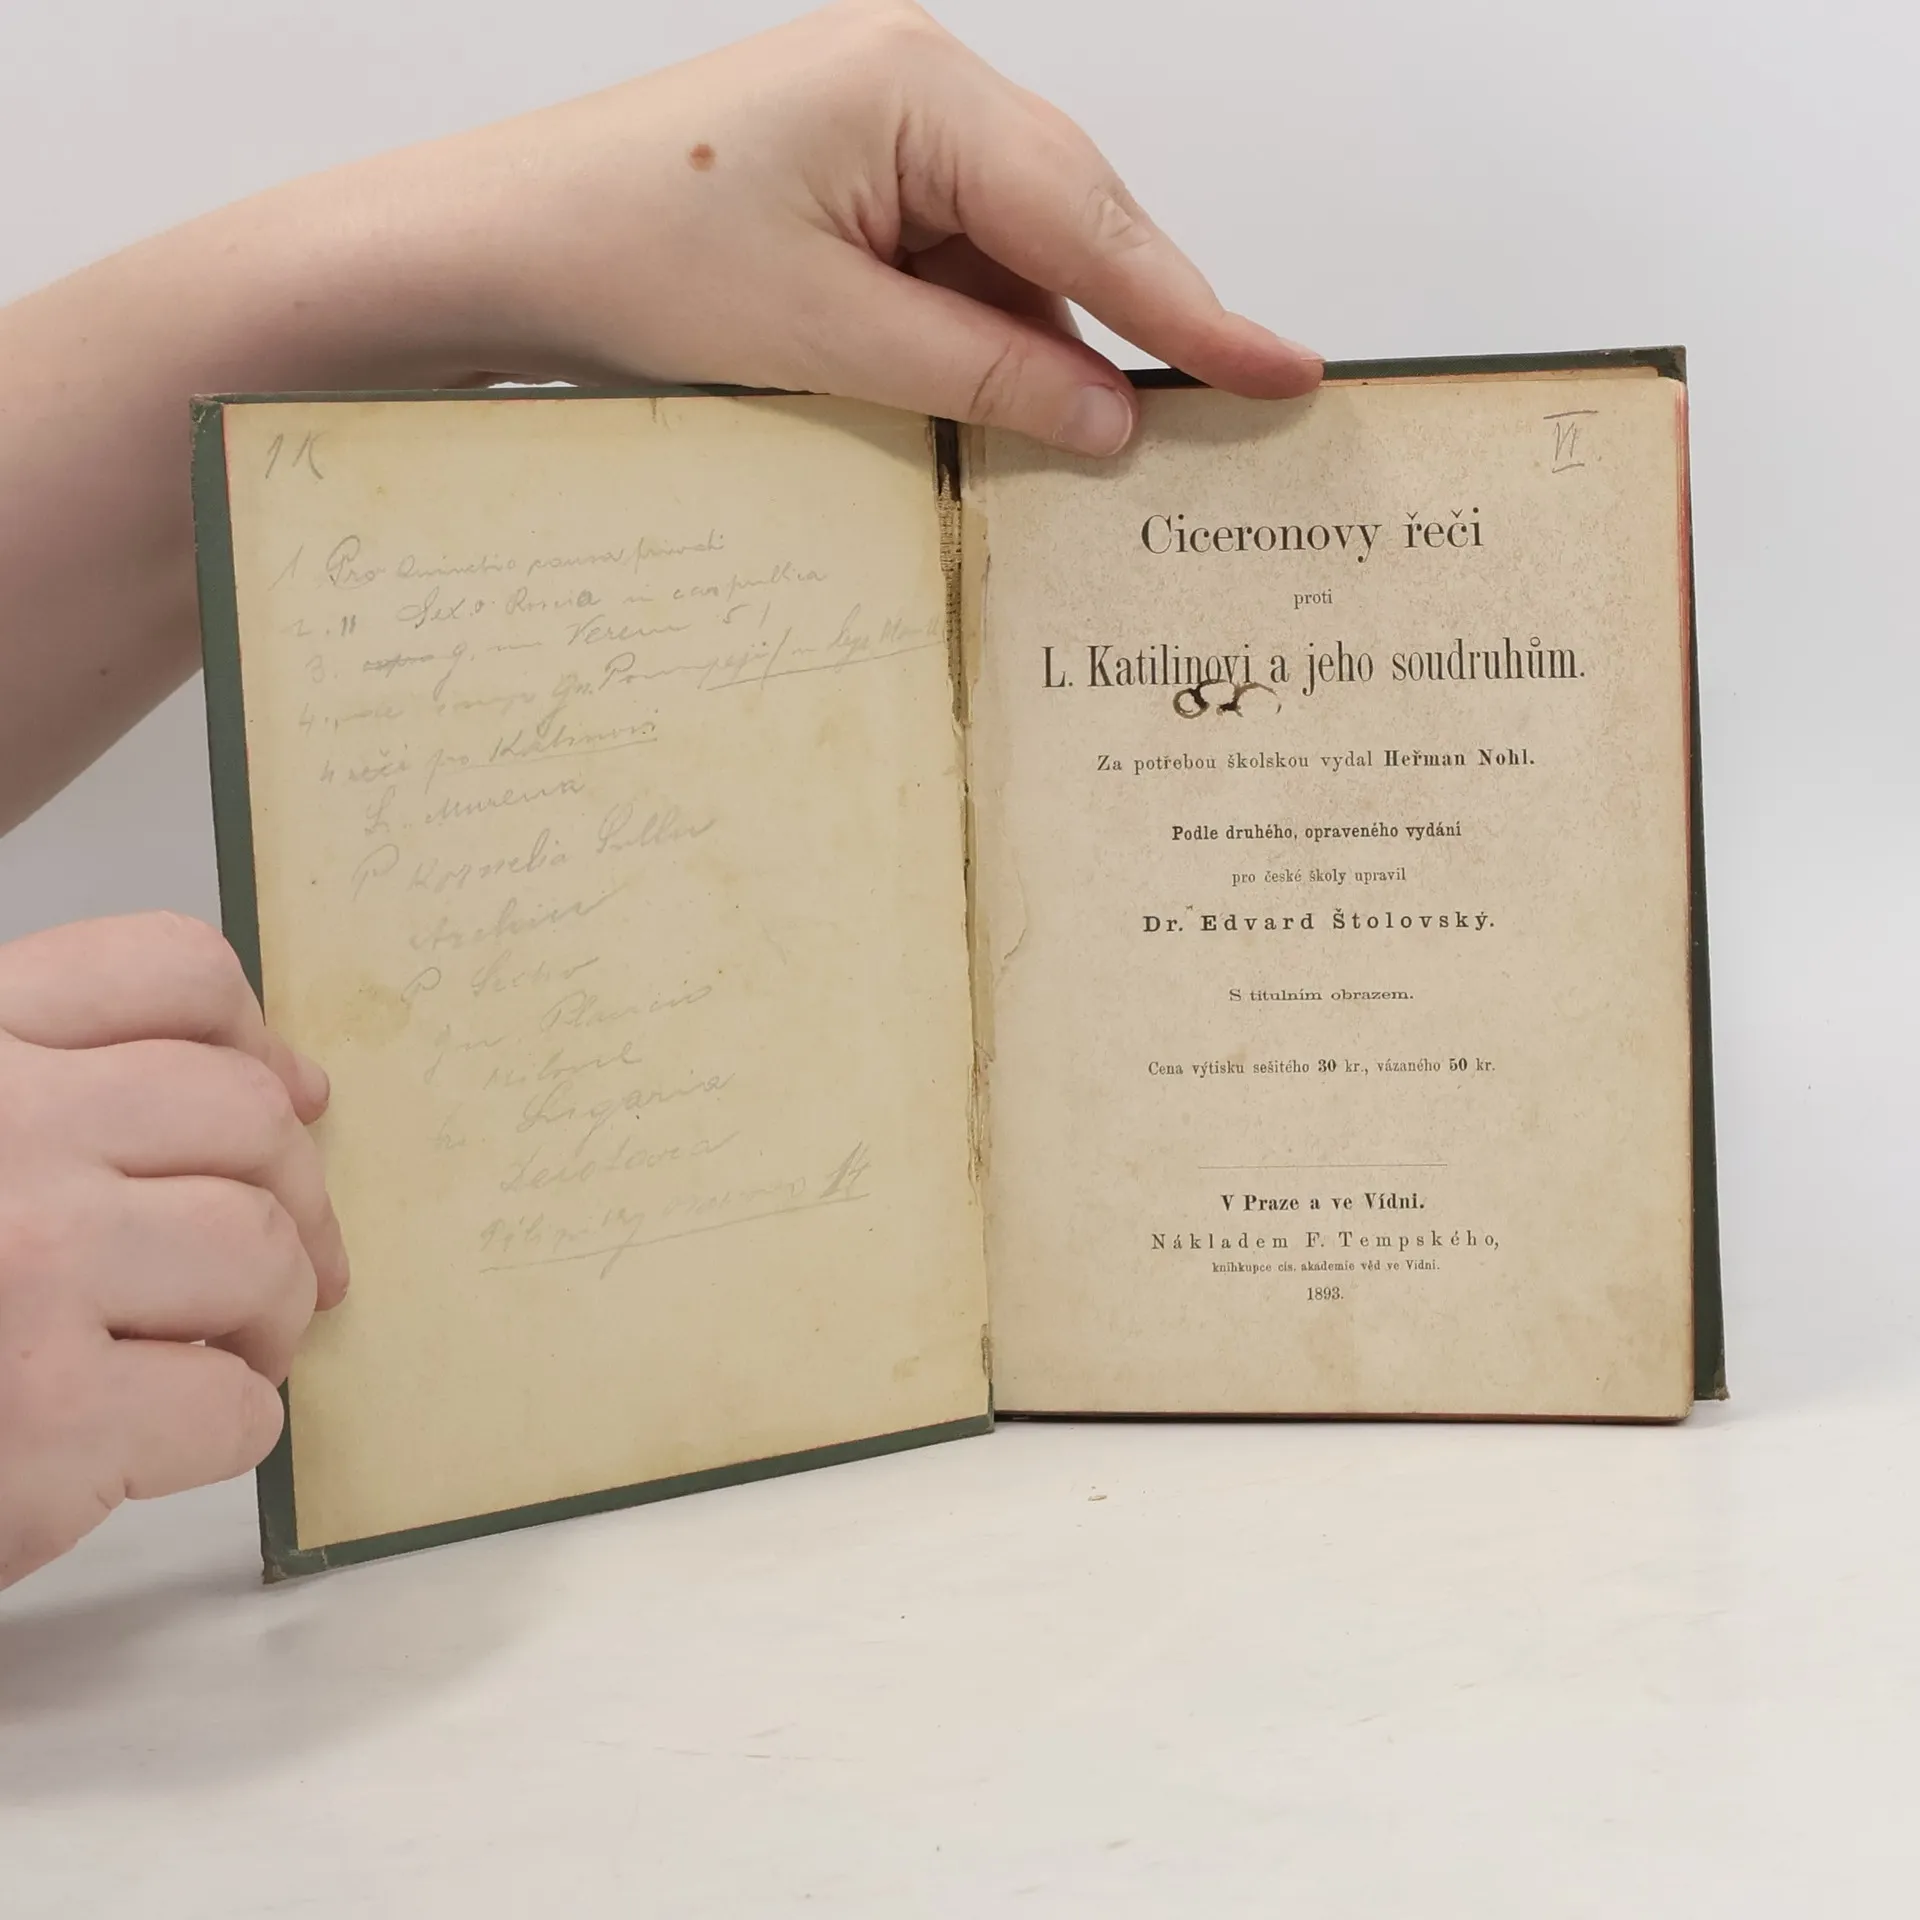 1 K
1 Pro Quinctio causa privati
2. " Sex. Roscia in caus publica
3. g. in Verem 5!
4. Gn. Pompeji
4 řeči pro Katilinovi
L. Murena
P Kornelia Sulla
Archia
P Sectio
Gn Plancio
Milone
Ligaria
Deiotara
14
VI.
Ciceronovy řeči
proti
L. Katilinovi a jeho soudruhům.
Za potřebou školskou vydal Heřman Nohl.
Podle druhého, opraveného vydání
pro české školy upravil
Dr. Edvard Štolovský.
S titulním obrazem.
Cena výtisku sešitého 30 kr., vázaného 50 kr.
V Praze a ve Vídni.
Nákladem F. Tempského,
knihkupce cís. akademie věd ve Vídni.
1893.